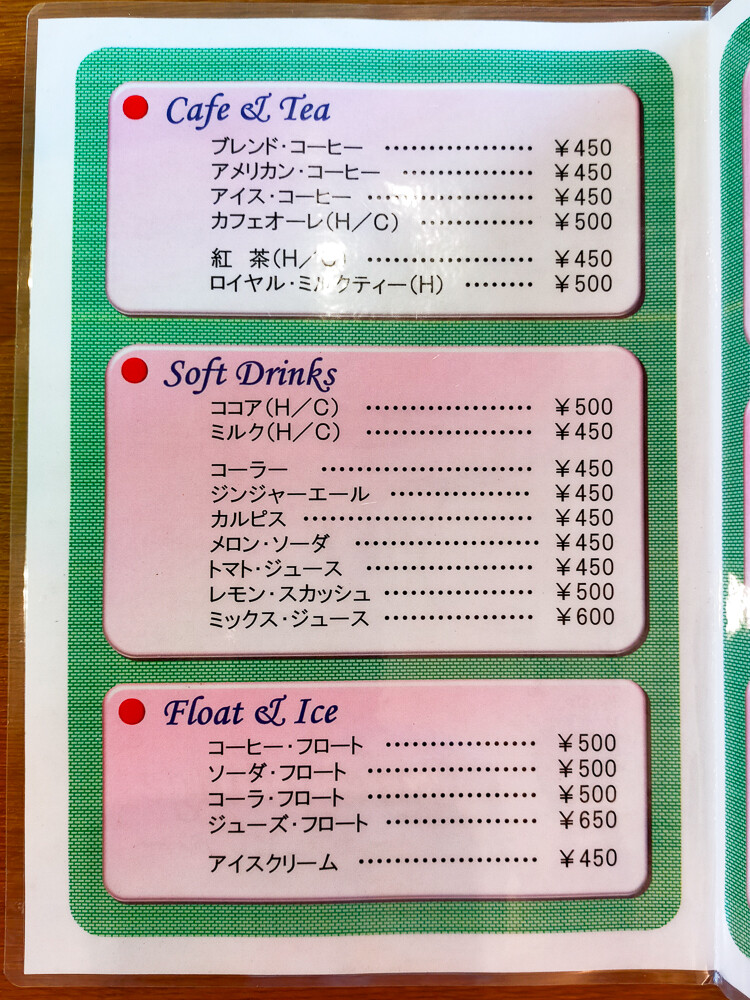 Cafe & Tea
ブレンド・コーヒー ‥‥‥‥‥‥‥‥ ￥450
アメリカン・コーヒー ‥‥‥‥‥‥‥ ￥450
アイス・コーヒー ‥‥‥‥‥‥‥‥‥ ￥450
カフェオーレ(H／C) ‥‥‥‥‥‥ ￥500
紅 茶(H／C) ‥‥‥‥‥‥‥‥‥ ￥450
ロイヤル・ミルクティー(H) ‥‥‥‥ ￥500
Soft Drinks
ココア(H／C) ‥‥‥‥‥‥‥‥‥ ￥500
ミルク(H／C) ‥‥‥‥‥‥‥‥‥ ￥450
コーラー ‥‥‥‥‥‥‥‥‥‥‥‥ ￥450
ジンジャーエール ‥‥‥‥‥‥‥‥ ￥450
カルピス ‥‥‥‥‥‥‥‥‥‥‥‥‥ ￥450
メロン・ソーダ ‥‥‥‥‥‥‥‥‥‥ ￥450
トマト・ジュース ‥‥‥‥‥‥‥‥‥ ￥450
レモン・スカッシュ ‥‥‥‥‥‥‥‥ ￥500
ミックス・ジュース ‥‥‥‥‥‥‥‥ ￥600
Float & Ice
コーヒー・フロート ‥‥‥‥‥‥‥‥ ￥500
ソーダ・フロート ‥‥‥‥‥‥‥‥‥ ￥500
コーラ・フロート ‥‥‥‥‥‥‥‥‥ ￥500
ジューズ・フロート ‥‥‥‥‥‥‥‥ ￥650
アイスクリーム ‥‥‥‥‥‥‥‥‥‥ ￥450